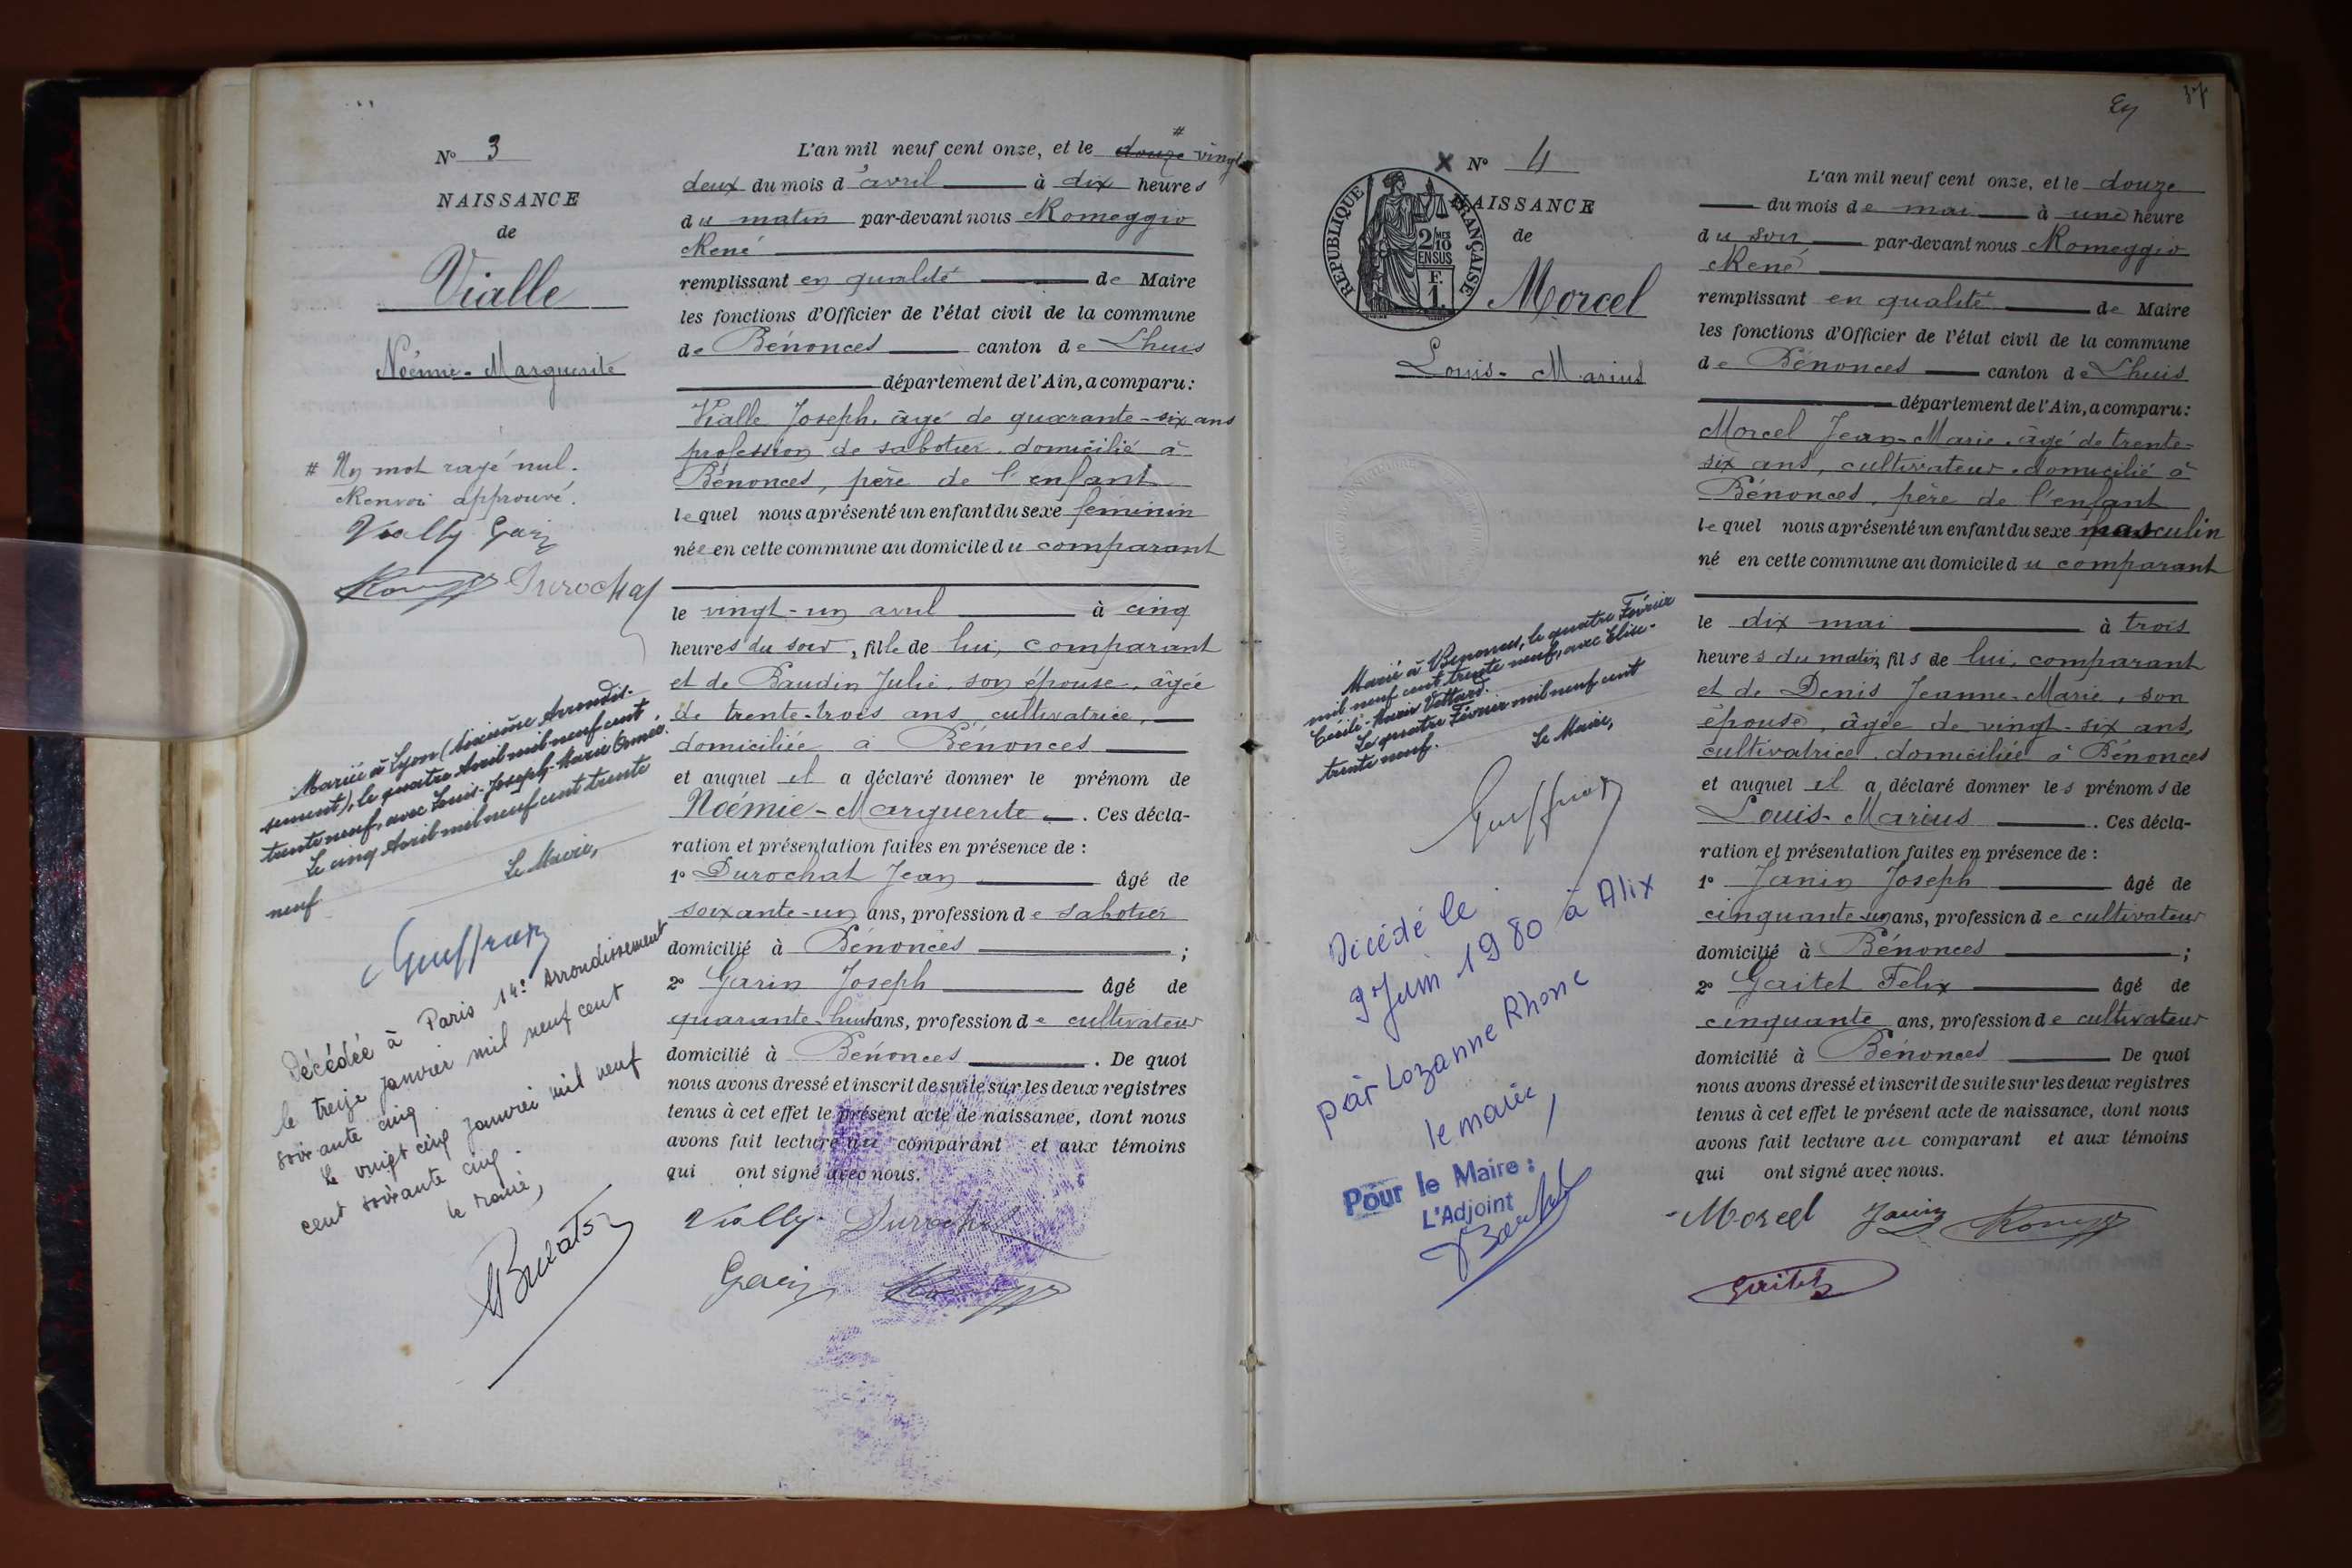 N° 3
NAISSANCE
de
Vialle
Noémie-Marguerite
# Un mot rayé nul.
Renvoi approuvé.
Vially Garin
Durochat
Mariée à Lyon (sixième Arrondis-
sement), le quatre Avril mil neuf cent
trente neuf, avec Louis-Joseph-Marie
Le cinq Avril mil neuf cent trente
neuf
Le Maire,
Décédée à Paris 14e Arrondissement
le treize janvier mil neuf cent
soixante cinq.
Le vingt cinq janvier mil neuf
cent soixante cinq.
le maire,
#
L'an mil neuf cent onze, et le douze vingt
deux du mois d'avril à dix heures
du matin par-devant nous Romeggio
René
remplissant en qualité de Maire
les fonctions d'Officier de l'état civil de la commune
de Bénonces canton de Lhuis
département de l'Ain, a comparu:
Vialle Joseph, âgé de quarante-six ans
profession de sabotier, domicilié à
Bénonces, père de l'enfant
lequel nous a présenté un enfant du sexe féminin
née en cette commune au domicile du comparant
le vingt-un avril à cinq
heures du soir, fille de lui, comparant
et de Baudin Julie, son épouse, âgée
de trente-trois ans, cultivatrice,
domiciliée à Bénonces
et auquel il a déclaré donner le prénom de
Noémie-Marguerite. Ces décla-
ration et présentation faites en présence de :
1° Durochat Jean âgé de
soixante-un ans, profession de sabotier
domicilié à Bénonces ;
2° Garin Joseph âgé de
quarante-huit ans, profession de cultivateur
domicilié à Bénonces. De quoi
nous avons dressé et inscrit de suite sur les deux registres
tenus à cet effet le présent acte de naissance, dont nous
avons fait lecture au comparant et aux témoins
qui ont signé avec nous.
Vially Durochat
Garin
37
X N° 4
NAISSANCE
de
REPUBLIQUE FRANÇAISE
2 MES
10
EN SUS
F.
1
Morcel
Louis-Marius
Marié à Bénonces, le quatre Février
mil neuf cent trente neuf, avec Elise-
Cécile-Marie Vettard.
Le quatre Février mil neuf cent
trente neuf.
Le Maire,
Décédé le
9 Juin 1980 à Alix
par Lozanne Rhone
le maire,
Pour le Maire :
L'Adjoint
L'an mil neuf cent onze, et le douze
du mois de mai à une heure
du soir par-devant nous Romeggio
René
remplissant en qualité de Maire
les fonctions d'Officier de l'état civil de la commune
de Bénonces canton de Lhuis
département de l'Ain, a comparu:
Morcel Jean-Marie, âgé de trente-
six ans, cultivateur, domicilié à
Bénonces, père de l'enfant
lequel nous a présenté un enfant du sexe masculin
né en cette commune au domicile du comparant
le dix mai à trois
heures du matin, fils de lui, comparant
et de Denis Jeanne-Marie, son
épouse, âgée de vingt-six ans,
cultivatrice, domiciliée à Bénonces
et auquel il a déclaré donner les prénoms de
Louis-Marius. Ces décla-
ration et présentation faites en présence de :
1° Janin Joseph âgé de
cinquante-un ans, profession de cultivateur
domicilié à Bénonces ;
2° Gaitet Felix âgé de
cinquante ans, profession de cultivateur
domicilié à Bénonces De quoi
nous avons dressé et inscrit de suite sur les deux registres
tenus à cet effet le présent acte de naissance, dont nous
avons fait lecture au comparant et aux témoins
qui ont signé avec nous.
Morcel Janin
Gaitet